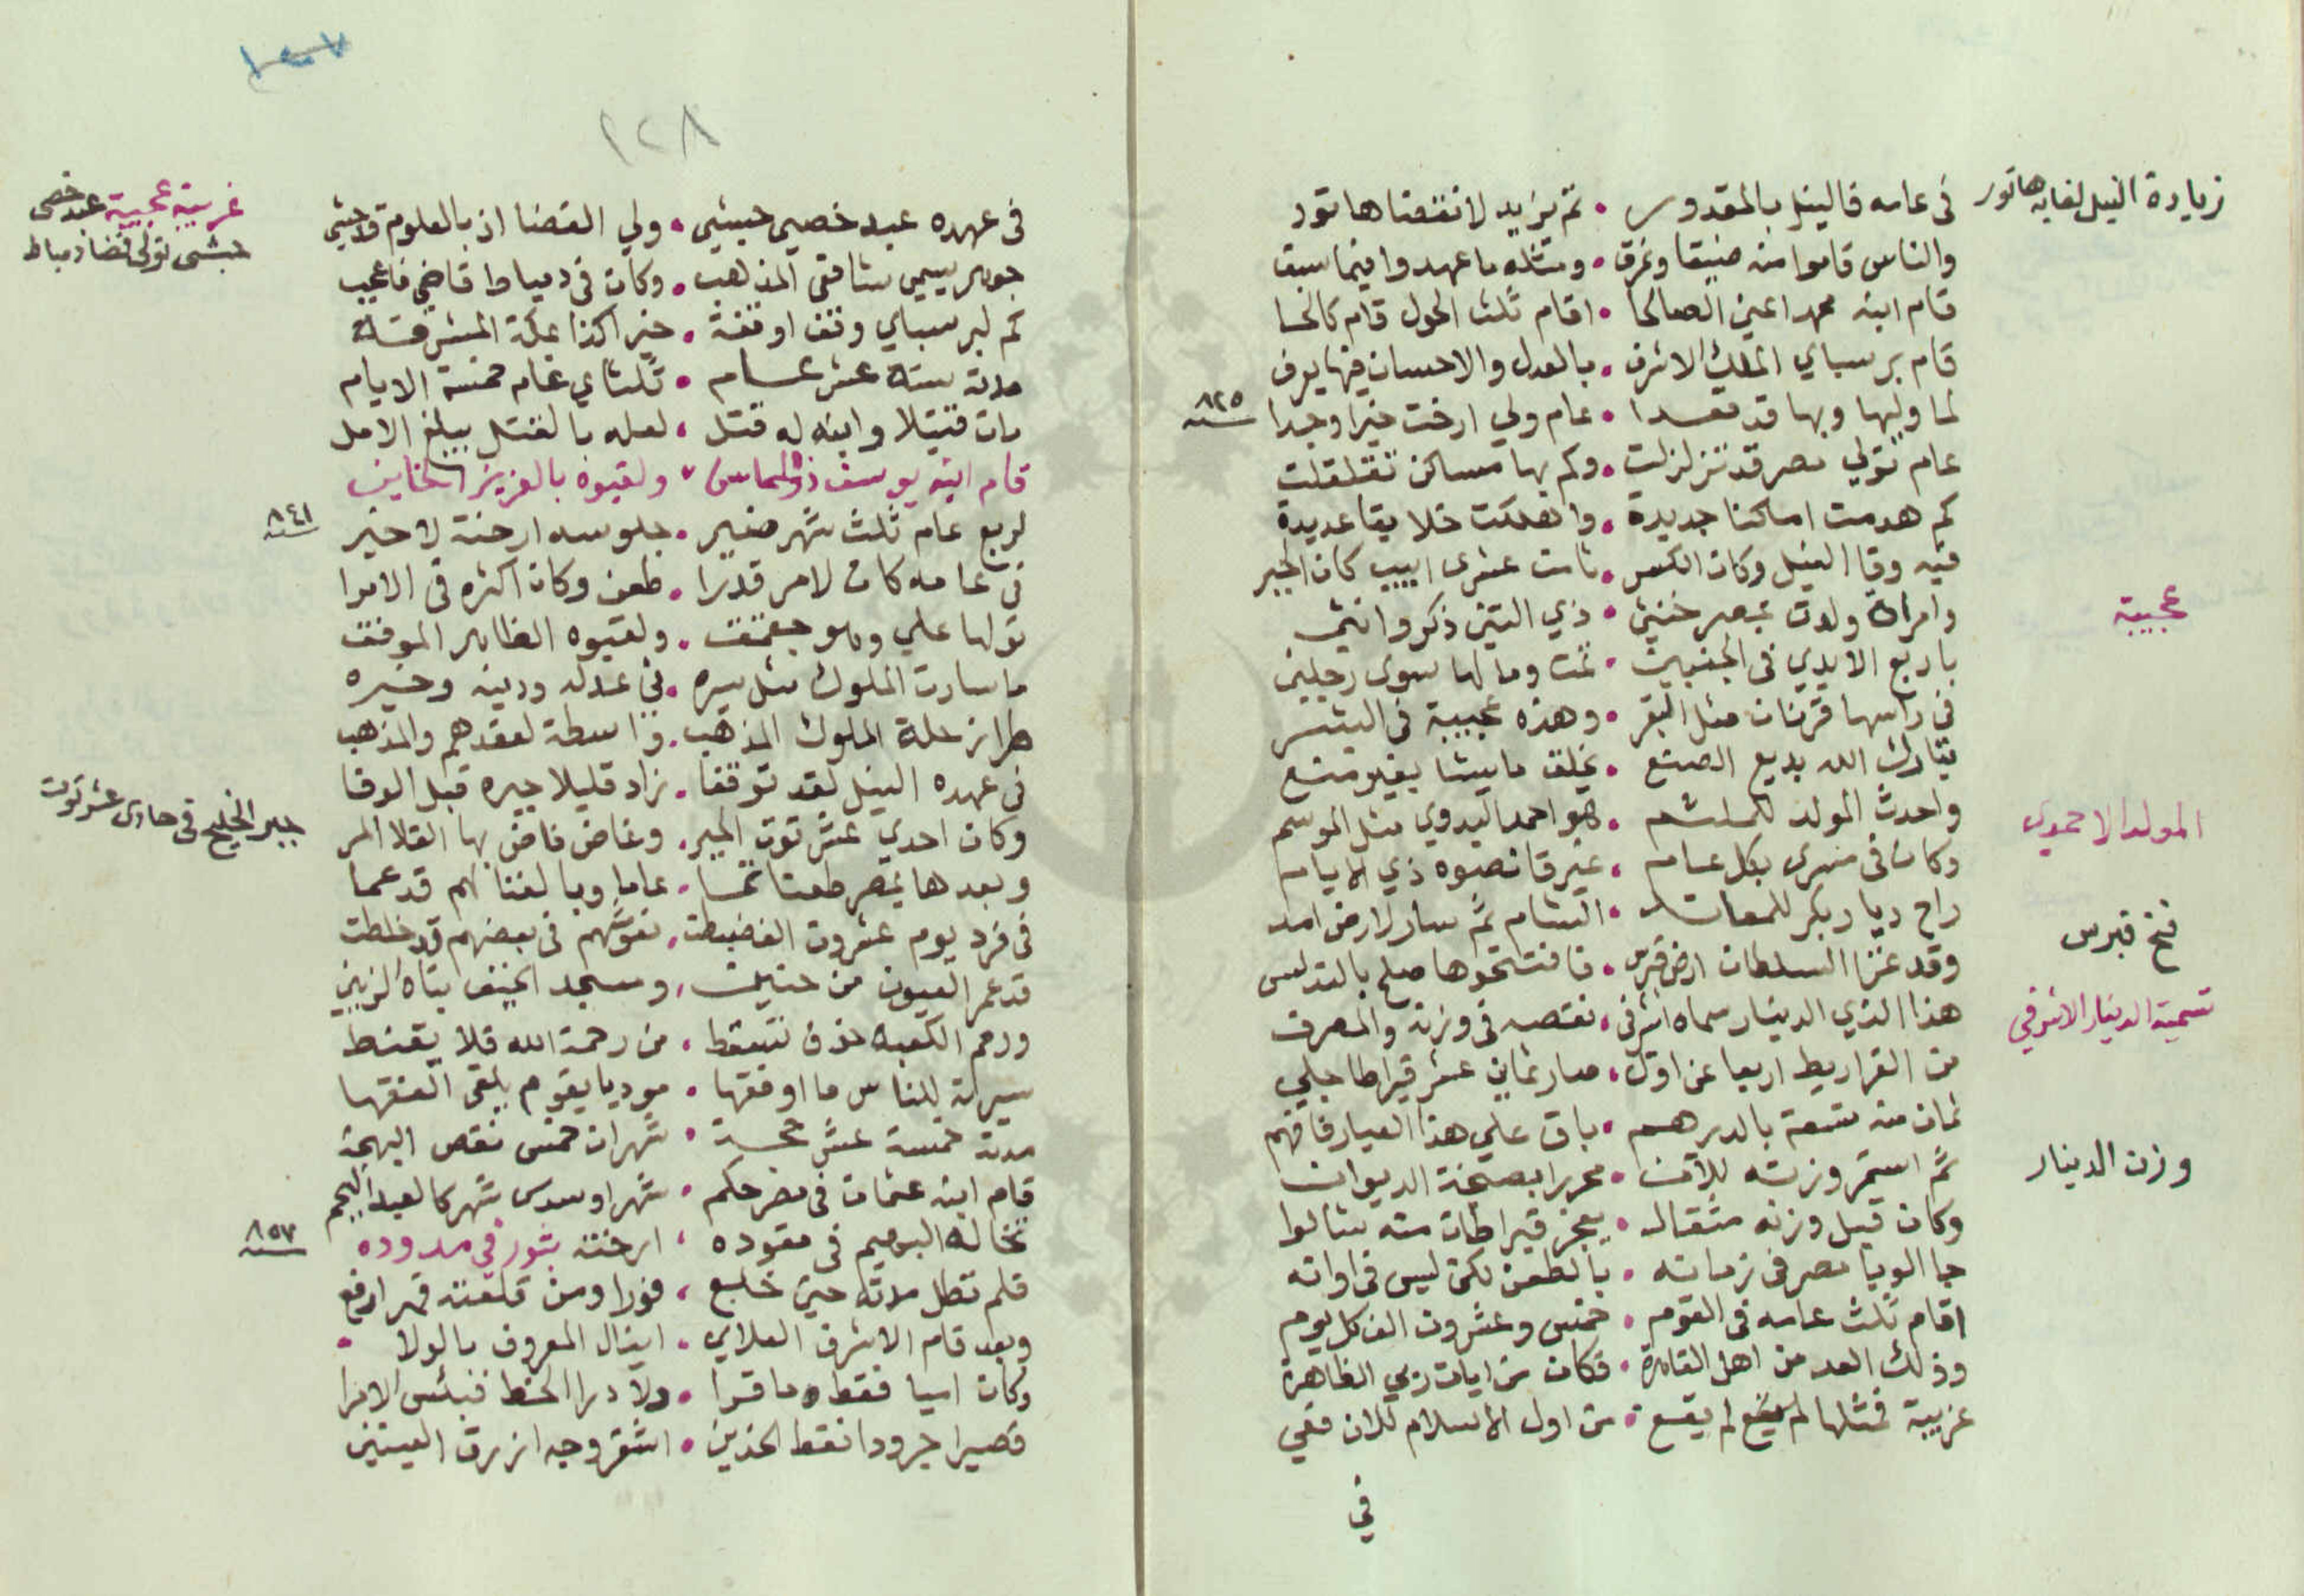 زيادة النيل لغاية هاتور
في عامه فالنيل بالمقدور • ثم يزيد لانقضا هاتور
والناس قاموا منه ضيقا وغرق • ومثله ما عهدوا فيما سبق
قام ابنه محمد اعني الصالحا • اقام ثلث الحول قام كالحسا
قام برسباي الملك الاشرف • بالعدل والاحسان فيها يعرف
لما وليها وبها قد قعدا • عام ولي ارخت خيرا وجدا
سنة ٨٢٥
عام تولي مصر قد تزلزلت • وكم بها مساكن تقلقلت
كم هدمت اماكنا جديدة • واهلكت خلايقا عديدة
فيه وفا النيل وكان الكسر • ثامن عشرى ابيب كان الجبر
عجيبة
وامراة ولدت بمصر خنثي • ذي التين ذكر وانثى
باربع الايدي في الجنبين • تمت وما لها سوى رجلين
في راسها قرنان مثل البقر • وهذه عجيبة في البشر
تبارك الله بديع الصنع • يخلق ما يشا بغير منع
المولد الاحمدي
واحدث المولد للملثم • هو احمد البدوي مثل الموسم
وكان في مسرى بكل عام • غير قانصوه ذي الايام
راح ديار بكر للمعاند • الشام ثم سار لارض امد
فتح قبرس
وقد غزا السلطان ارض قبرس • فافتتحوها صلح بالقدلس
تسمية الدينار الاشرفي
هذا الذي الدينار سماه اشرفي • نقصه في وزنه والمصرف
من القراريط اربعا عن اول • صار ثماني عشر قيراطا جلي
ثمان منه تسعة بالدرهم • باق علي هذا العيار فافهم
وزن الدينار
ثم استمر وزنه للآن • محررا بصنجة الديوان
وكان قبل وزنه مثقال • بعجز قيراطان منه شالوا
جا الوبا مصر في زمانه • بالطعن لكن ليس في اوانه
اقام ثلث عامه في القوم • خمس وعشرون الف كل يوم
وذلك العد من اهل القاهرة • فكان من ايات ربي الظاهرة
غريبة فمثلها لم يقع • من اول الاسلام للان فعي
في
١٢٨
غريبة عجيبة عبد خصي
حبشي تولى قضا دمياط
في عهده عبد خصي حبشي • ولي القضا اذ بالعلوم قد حشي
جوهر يسمي شافعي المذهب • وكان في دمياط قاضي فاعجب
كم لبرسباي وقف اوقفة • خيرا كذا بمكة المشرفة
مدته ستة عشر عام • ثلثاي عام خمسة الايام
مات قتيلا وابنه له قتل • لعله بالقتل يبلغ الامل
قام ابنه يوسف ذو المحاسن • ولقبوه بالعزيز الخاين
لربع عام ثلث شهر صغير • جلوسه ارخته لا خير
سنة ٨٤١
في عامه كان لامر قدرا • طعن وكان اكثره في الامرا
تولها علي وهو جقمق • ولقبوه الظاهر الموفق
ما سارت الملوك مثل سيره • في عدله ودينه وخيره
طراز حلة الملوك المذهب • واسطة لعقدهم والمذهب
في عهده النيل لقد توقفا • زاد قليلا جبره قبل الوفا
جبر الخليج في حادى عشر توت
وكان احدي عشر توت الجبر • وغاض فاض بها الغلا المر
وبعدها بمصر طعنا نما • عاما وبالفنا لهم قد عما
في فرد يوم عشرون الف ضبطت • نعوشهم في بعضهم قد خلطت
قد عمر العيون من حنين • ومسجد الخيف بناه الزيني
ورمم الكعبة خوف تسقط • من رحمة الله فلا يقنط
سيرته للناس ما اوفقها • موديا يقوم يلقي الفقها
مدته خمسة عشر حجة • شهران خمس نقص البهجة
قام ابنه عثمان في مصر حكم • شهرا وسدس شهر كالعبد البهم
تخاله البهيم في قعوده • ارخته بثور في مدوده
سنة ٨٥٧
فلم تطل مدته حين خلع • فورا ومن قلعته قهرا رفع
وبعد قام الاشرف العلاي • اينال المعروف بالولا •
وكان اميا فقط ما قرا • ولا درا الخط فبئس الامرا
قصيرا جرودا نقط الخدين • اشقر وجه ازرق العينين